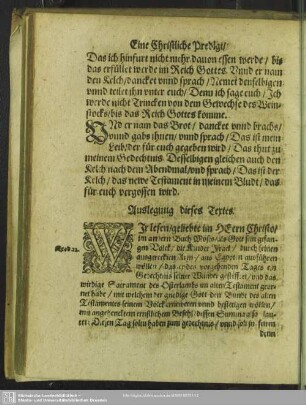 Eine Christliche Predigt/
Das ich hinfurt nicht mehr dauon essen werde/ bis
das erfüllet werde im Reich Gottes. Vnnd er nam
den Kelch/ dancket vnnd sprach/ Nemet denselbigen
vnnd teilet ihn vnter euch/ Denn ich sage euch/ Ich
werde nicht Trincken von dem Gewechse des Wein-
stocks/ bis das Reich Gottes komme.
VNd er nam das Brot/ dancket vnnd brachs/
vnnd gabs ihnen/ vnnd sprach/ Das ist mein
Leib/ der für euch gegeben wird/ Das thut zu
meinem Gedechtnis. Desselbigen gleichen auch den
Kelch nach dem Abendmal/ vnd sprach/ Das ist der
Kelch/ das newe Testament in meinem Bludt/ das
für euch vergossen wird.
Auslegung dieses Textes.
WIr lesen/ geliebte im HErrn Christo/
im andern Buch Mosis/ als Gott sein gefan-
gen Volck/ die Kinder Israel/ durch seinen
ausgereckten Arm/ aus Egipt
wöllen/ das er des vorgehenden Tages ein
Gedechtnis seiner Wunder gestifftet/ vnd das
wirdige Sacrament des Osterlambs im alten Testament
net habe/ mit welchem der gnedige Gott den Bundt des alten
Testamentes seinem Volck
mit angehencktem ernstlichem Befehl/ dessen Summa also
tet: Diesen Tag solt ihr haben zum gedechtnis/ vnnd solt ihn feyren
denn
Exod. 12.